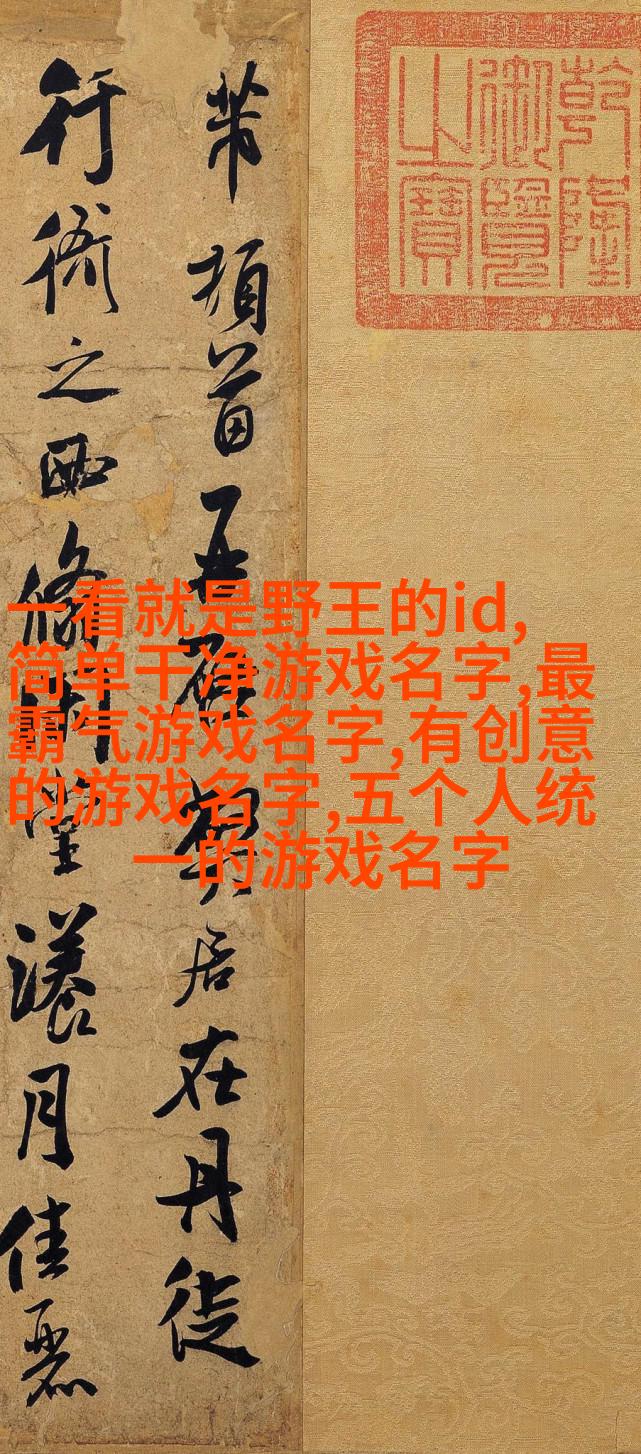 乾隆
御覽
之寶
芾頓首再啓弊居在丹徒
行衙之西翛閒堂漾月佳麗
一看就是野王的id,
简单干净游戏名字,最
霸气游戏名字,有创意
的游戏名字,五个人统
一的游戏名字